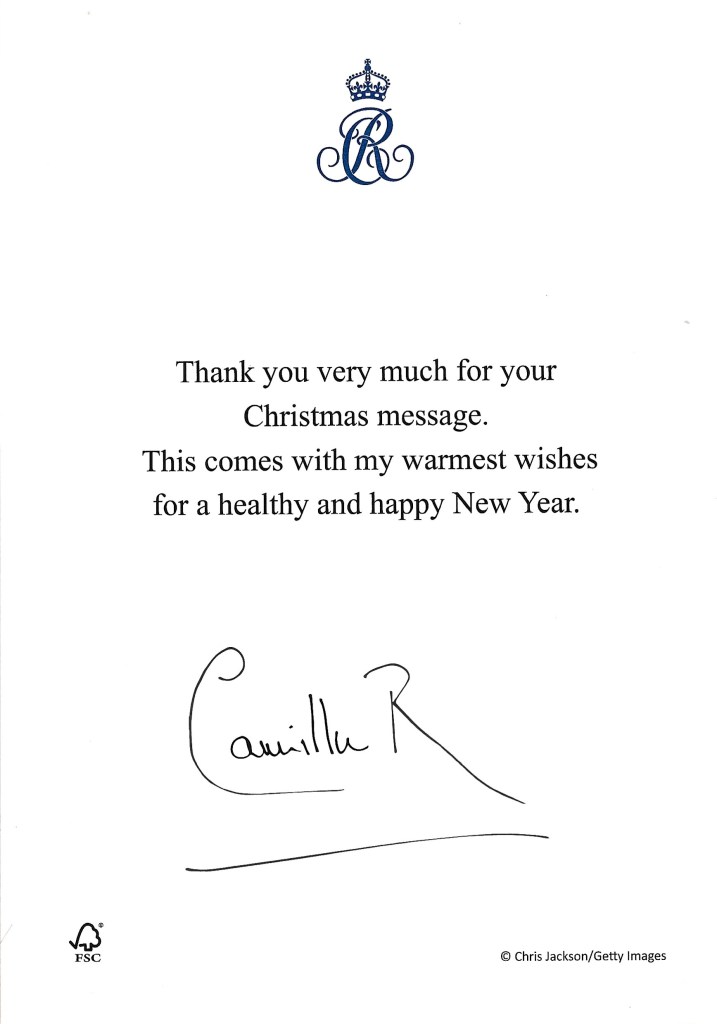 CR
Thank you very much for your
Christmas message.
This comes with my warmest wishes
for a healthy and happy New Year.
Camilla R
FSC
® 
© Chris Jackson/Getty Images